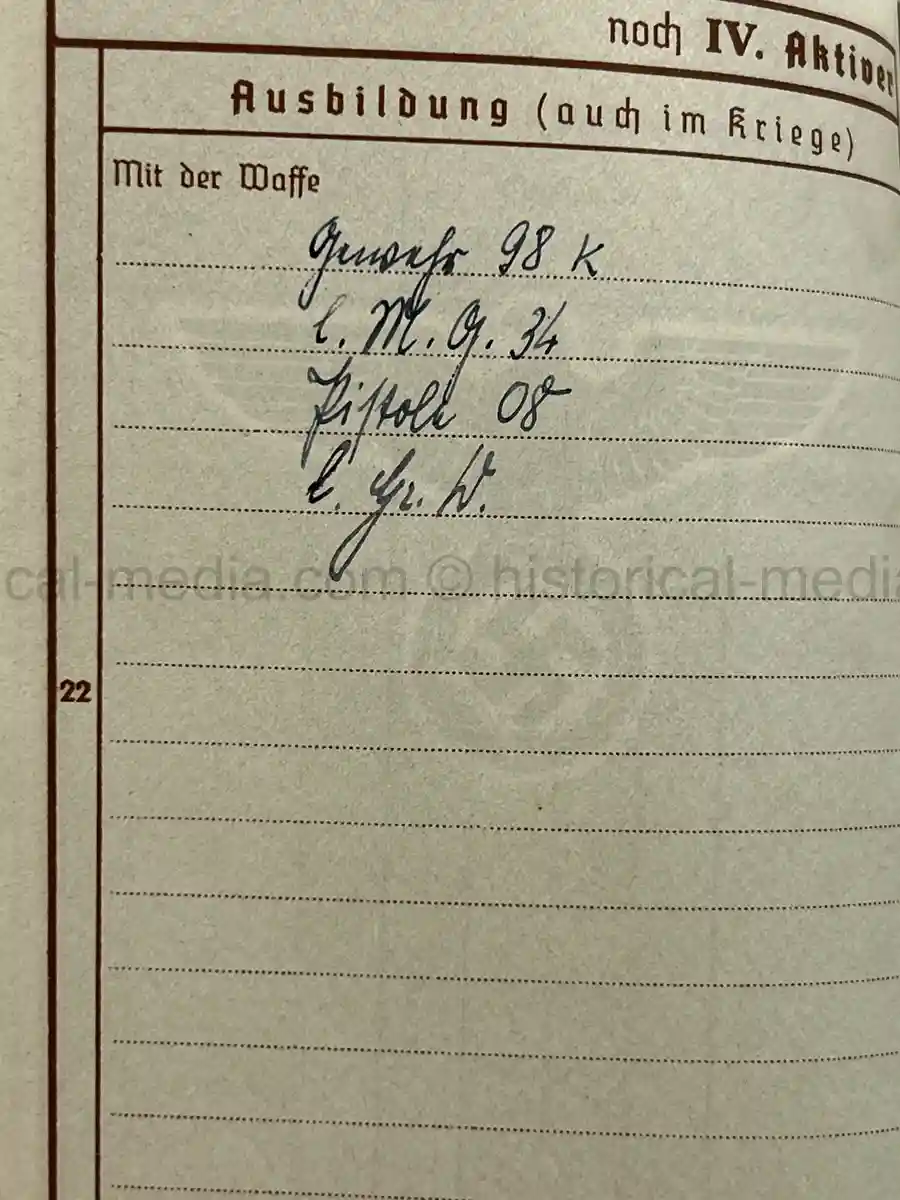 noch IV. Aktiver
Ausbildung (auch im Kriege)
Mit der Waffe
Gewehr 98 K
l. M. G. 34
Pistole 08
l. Gr. W.
cal-media.com © historical-medi
22